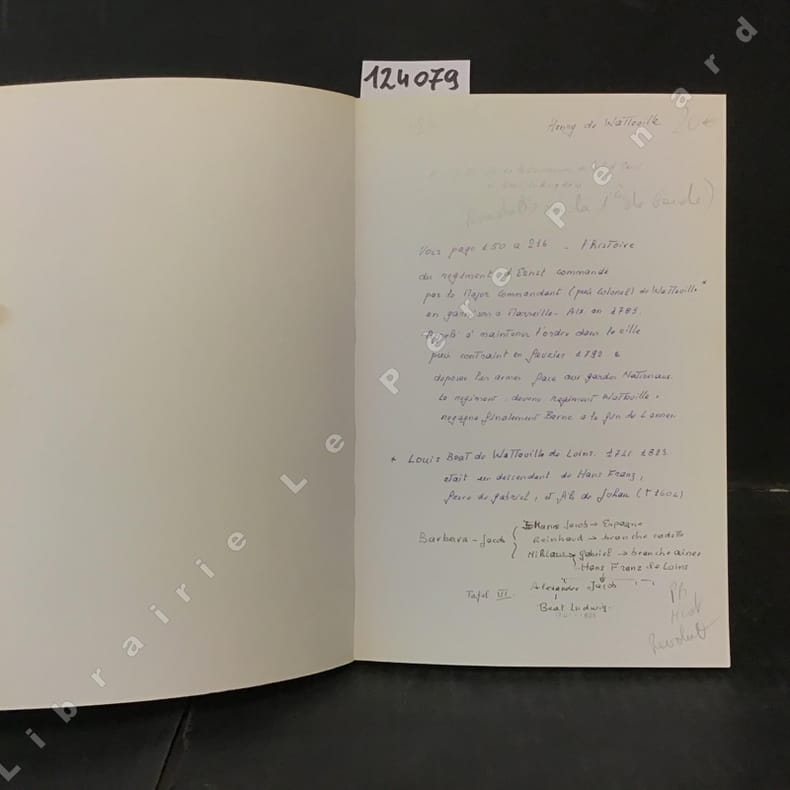 124079
Henry de Watteville
Voir page 150 a 216 - l'histoire
du regiment d'Ernst commandé
par le Major Commandant (puis Colonel) de Watteville *
en garnison a Marseille - Aix en 1789.
a maintenir l'ordre dans la ville
puis contraint en fevrier 1792 a
deposer les armes face aux gardes Nationaux.
Le regiment, devenu regiment Watteville,
regagne finalement Berne a la fin de l'annee
* Louis Beat de Watteville de Loins. 1741 1823.
etait un descendant de Hans Franz,
frere de gabriel, et fils de Johan († 1604)
Barbara - Jacob { Hans Jacob → Espagne
Reinhard → branche cadette
Niklaus → gabriel → branche ainee
Hans Franz de Loins
Tafel III. Alexander Jacob
Beat Ludwig
Ph
Hist
Librairie Le Pere Penard